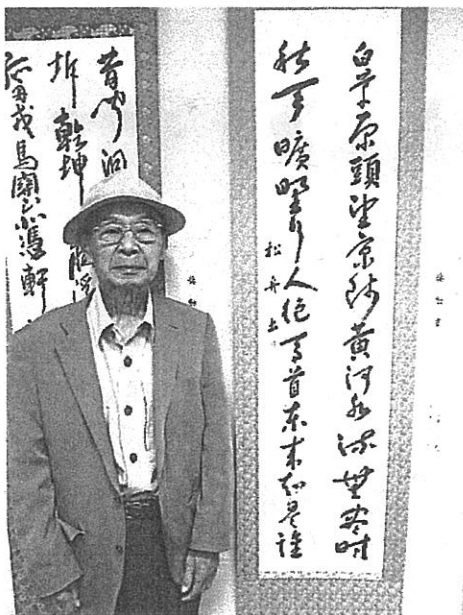 白草原頭望京師黄河水流無尽時
秋天曠野行人絶馬首東来知是誰
松舟
昔聞洞
坼乾坤
孤舟戎馬關山北憑軒